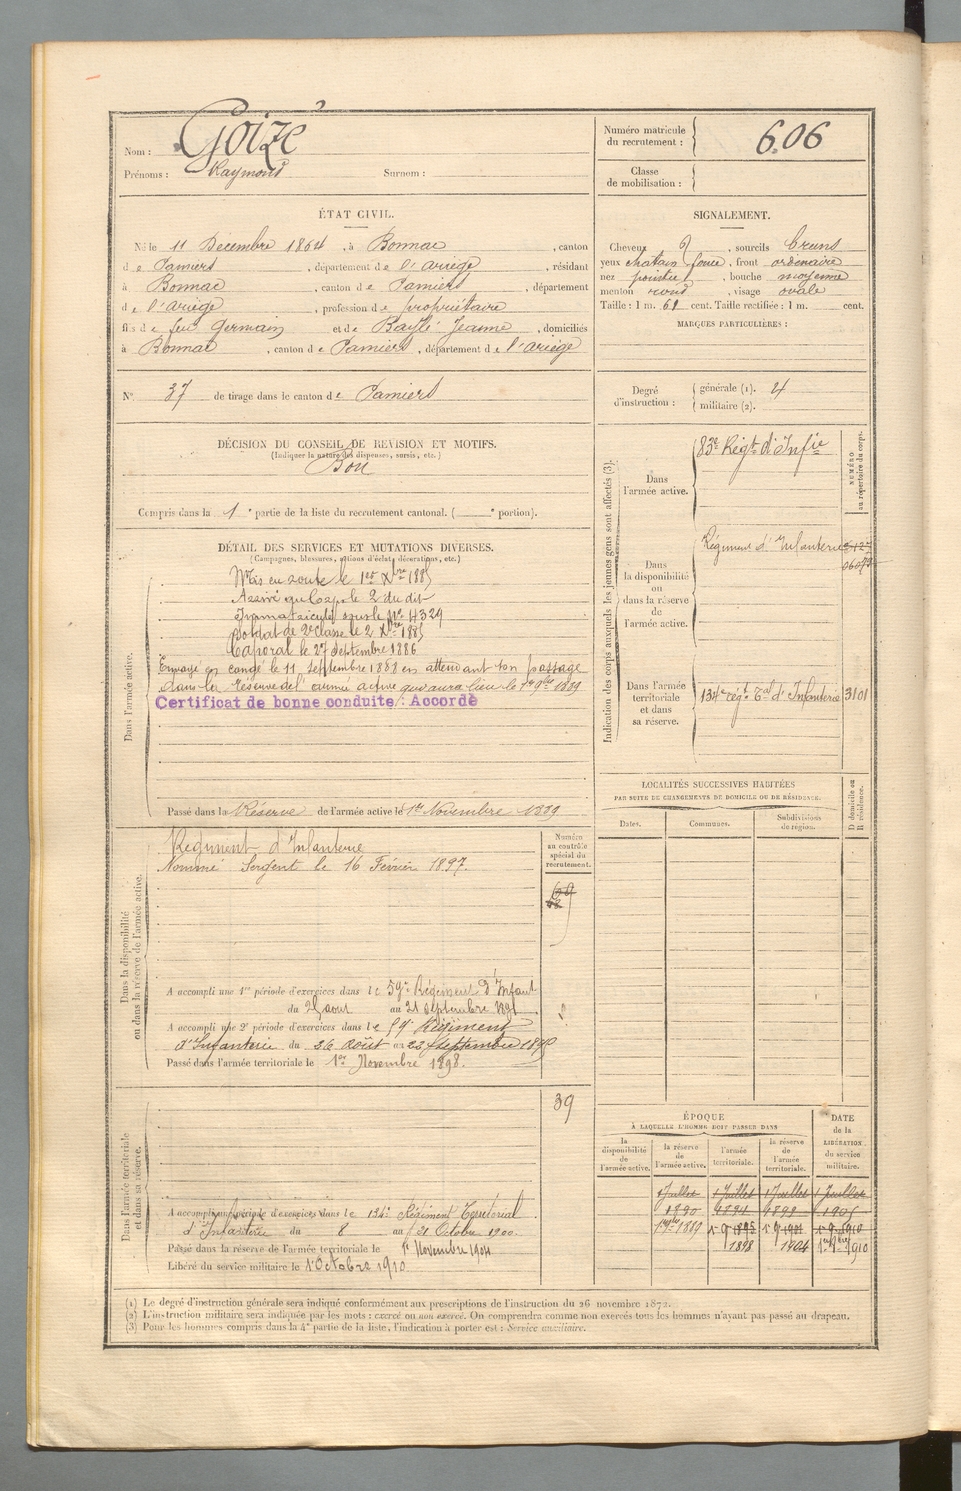 Nom : Goizé
Prénoms : Raymond Surnom :
Numéro matricule du recrutement : 606
Classe de mobilisation :
ÉTAT CIVIL.
Né le 11 Décembre 1864, à Bonnac, canton
de Pamiers, département de l'Ariège, résidant
à Bonnac, canton de Pamiers, département
de l'Ariège, profession de propriétaire
fils de feu Germain et de Baylé Jeanne, domiciliés
à Bonnac, canton de Pamiers, département de l'Ariège
SIGNALEMENT.
Cheveux , sourcils bruns
yeux chatain foncé, front ordinaire
nez pointu, bouche moyenne
menton rond, visage ovale
Taille : 1 m. 61 cent. Taille rectifiée : 1 m. cent.
MARQUES PARTICULIÈRES :
N° 37 de tirage dans le canton de Pamiers
Degré d'instruction : générale (1). 4
militaire (2).
DÉCISION DU CONSEIL DE RÉVISION ET MOTIFS.
(Indiquer la nature des dispenses, sursis, etc.)
Bon
Compris dans la 1e partie de la liste du recrutement cantonal. ( e portion).
DÉTAIL DES SERVICES ET MUTATIONS DIVERSES.
(Campagnes, blessures, actions d'éclat, décorations, etc.)
Dans l'armée active.
Mis en route le 1er Xbre 1885
Arrivé au Corps le 2 du dit
Immatriculé sous le No 4329
Soldat de 2e classe le 2 Xbre 1885
Caporal le 27 Septembre 1886
Envoyé en congé le 11 Septembre 1888 en attendant son passage
dans la réserve de l'armée active qui aura lieu le 1er 9bre 1889
Certificat de bonne conduite : Accordé
Passé dans la Réserve de l'armée active le 1er Novembre 1889
Indication des corps auxquels les jeunes gens sont affectés (3).
NUMÉRO au répertoire du corps.
Dans l'armée active.
83e Régt d'Infie
Dans la disponibilité ou dans la réserve de l'armée active.
Régiment d'Infanterie
Dans l'armée territoriale et dans sa réserve.
134e régt Eal d'Infanterie 3101
LOCALITÉS SUCCESSIVES HABITÉES
PAR SUITE DE CHANGEMENTS DE DOMICILE OU DE RÉSIDENCE.
Dates. Communes. Subdivisions de région. D domicile ou R résidence.
Dans la disponibilité ou dans la réserve de l'armée active.
Numéro au contrôle spécial du recrutement.
Régiment d'Infanterie
Nommé Sergent le 16 Février 1897.
A accompli une 1re période d'exercices dans le 59e Régiment d'Infant
du août au 21 Septembre 1891
A accompli une 2e période d'exercices dans le 59 Régiment
d'Infanterie du 26 Août au 22 Septembre
Passé dans l'armée territoriale le 1er Novembre 1898.
Dans l'armée territoriale et dans sa réserve.
39
A accompli une période d'exercices dans le 134e Régiment Territorial
d'Infanterie du 8 au 21 Octobre 1900.
Passé dans la réserve de l'armée territoriale le 1er Novembre 1904
Libéré du service militaire le 1 Octobre 1910
ÉPOQUE
À LAQUELLE L'HOMME DOIT PASSER DANS
la disponibilité de l'armée active. la réserve de l'armée active. l'armée territoriale. la réserve de l'armée territoriale.
DATE de la LIBÉRATION du service militaire.
1 Juillet 1 Juillet 1 Juillet 1 Juillet
1890 1894 1899 1905
1er 9bre 1889 1er 9 1895 1er 9 1901 1er 9 1910
1898 1904 1910
(1) Le degré d'instruction générale sera indiqué conformément aux prescriptions de l'instruction du 26 novembre 1872.
(2) L'instruction militaire sera indiquée par les mots : exercé ou non exercé. On comprendra comme non exercés tous les hommes n'ayant pas passé au drapeau.
(3) Pour les hommes compris dans la 4e partie de la liste, l'indication à porter est : Service auxiliaire.